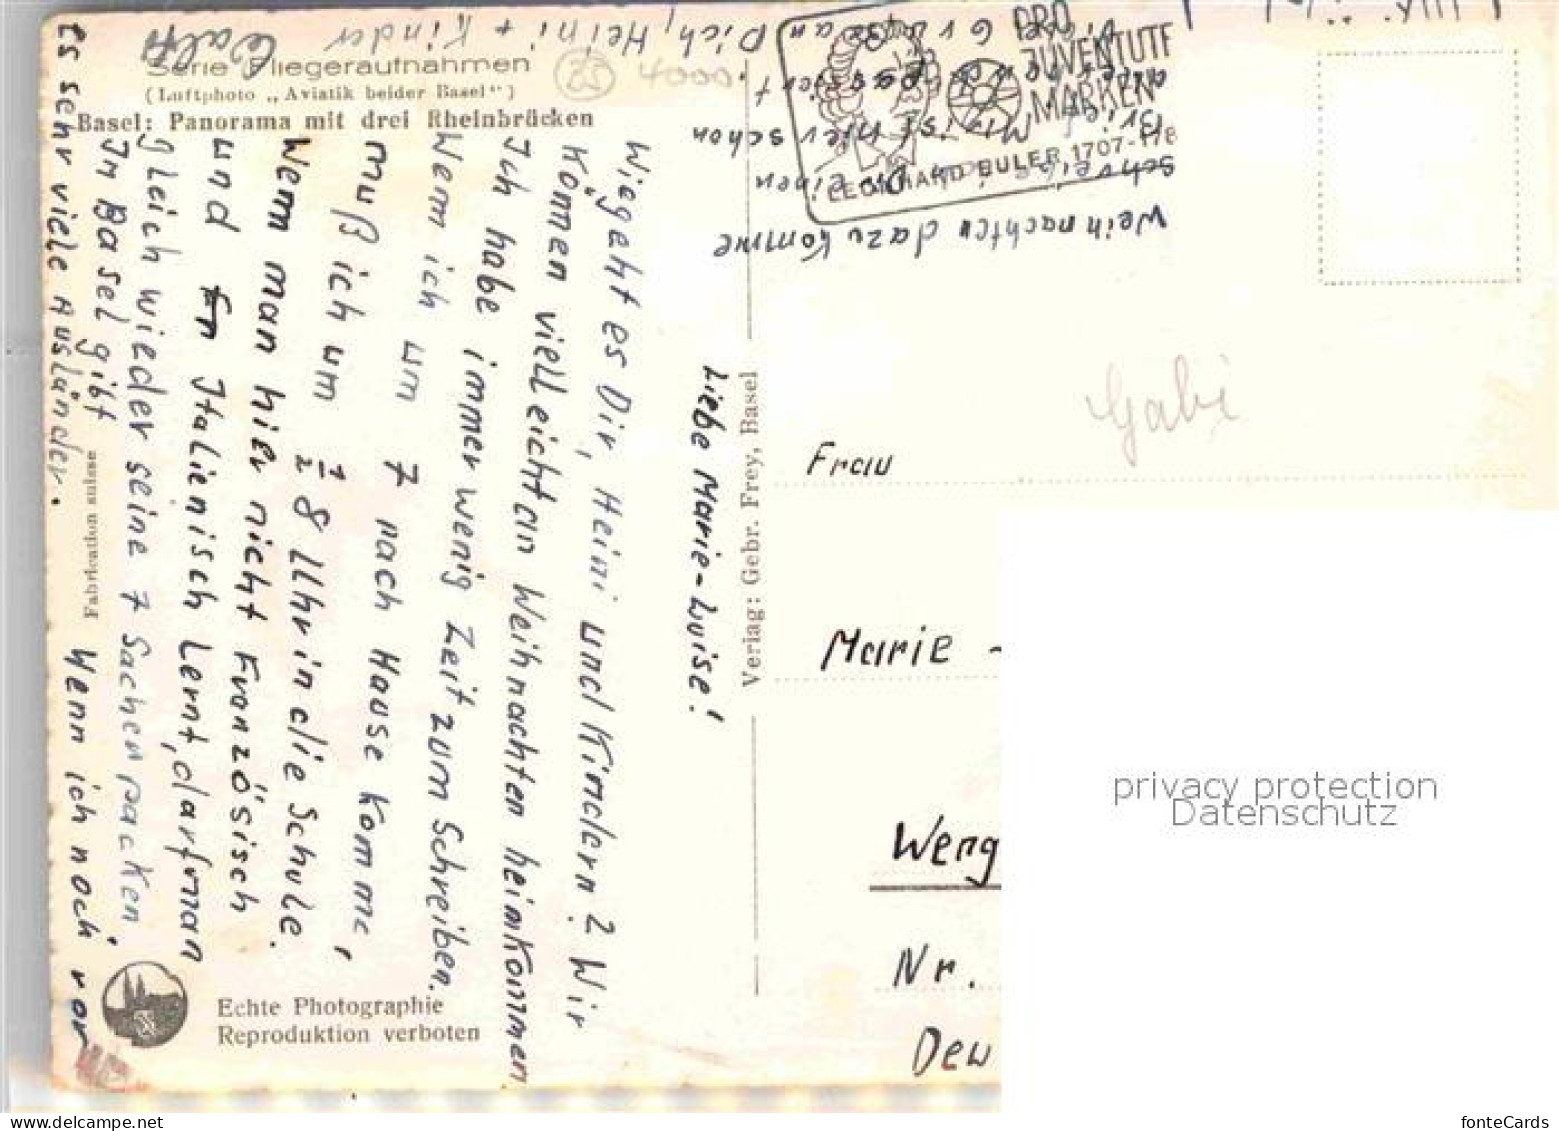 Serie Fliegeraufnahmen
(Luftphoto „Aviatik beider Basel")
Basel: Panorama mit drei Rheinbrücken
25
4000
Liebe Marie-Luise!
Wiegeht es Dir, Heini und Kindern? Wir
Können vielleicht an Weihnachten heimkommen
Ich habe immer wenig Zeit zum Schreiben.
Wenn ich um 7 nach Hause komme,
muß ich um ½ 8 Uhr in die Schule.
Wenn man hier nicht Französisch
und Italienisch Lernt, darf man
gleich wieder seine 7 Sachen packen.
In Basel gibt
es sehr viele Ausländer.
Wenn ich noch vor
Weihnachten dazu komme
schreibe ich Dir einen
Brief. Mir ist hier schon
passiert.
Grüße an Dich, Heini + Kinder
Fabrication suisse
Echte Photographie
Reproduktion verboten
Verlag: Gebr. Frey, Basel
PRO
JUVENTUTE
MARKEN
LEONHARD EULER 1707-178
Gabi
Frau
Marie -
Weng
Nr.
privacy protection
Datenschutz
www.delcampe.net
fonteCards